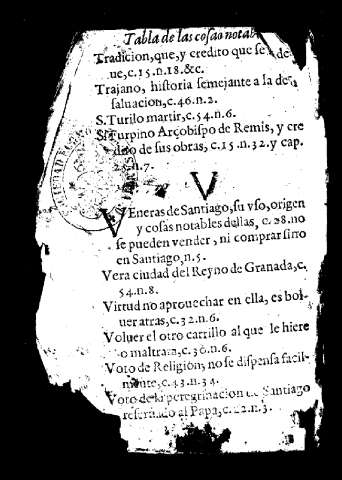 Tabla de las cosas notab
Tradicion, que, y credito que se le de-
ue, c. 15. n. 18. &c.
Trajano, historia semejante a la de
saluacion, c. 46. n. 2.
S. Turilo martir, c. 54. n. 6.
S. Turpino Arçobispo de Remis, y cre
dito de sus obras, c. 15. n. 32. y cap.
n. 7.
V
VEneras de Santiago, su vso, origen
y cosas notables dellas, c. 28. no
se pueden vender, ni comprar sino
en Santiago, n. 5.
Vera ciudad del Reyno de Granada, c.
54. n. 8.
Virtud no aprouechar en ella, es bol-
uer atras, c. 32. n. 6.
Voluer el otro carrillo al que le hiere
o maltrata, c. 36. n. 6.
Voto de Religion, no se dispensa facil-
mente, c. 43. n. 34.
Voto de la peregrinacion de Santiago
reseruado al Papa, c. 22. n. 3.